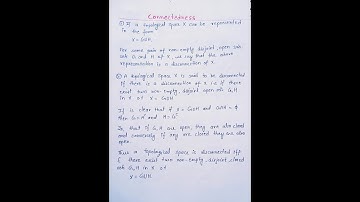 Connectedness
① If a topological space X can be represented
in the form
X = GUH,
For some pair of non-empty disjoint open sub
sets G and H of X, we say that the above
representation is a disconnection of X.
② A topological space X is said to be disconnected
if there is a disconnection of X i.e. if there
exist two non-empty, disjoint open sets G, H
in X st X = GUH
If is clear that if X = GUH and G∩H = ϕ
then G = H' and H = G'
So, that if G, H are open, they are also closed
and conversely if any are closed they are also
open.
Thus a topological space is disconnected iff
there exist two non-empty disjoint closed
sets G, H in X st
X = GUH